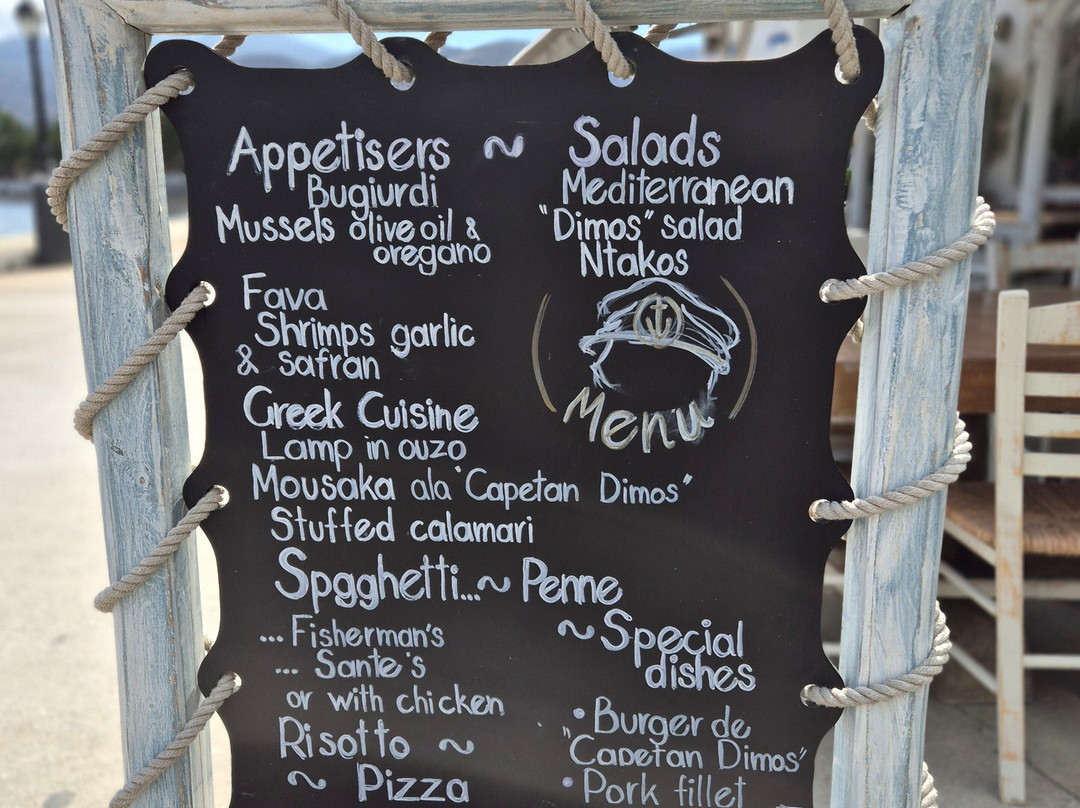 Appetisers ~ Salads
Bugiurdi
Mussels olive oil &
oregano
Fava
Shrimps garlic
& safran
Mediterranean
"Dimos" salad
Ntakos
Menu
Greek Cuisine
Lamp in ouzo
Mousaka ala "Capetan Dimos"
Stuffed calamari
Spgghetti...~ Penne
... Fisherman's
... Sante's
or with chicken
Risotto ~
~ Pizza
~ Special
dishes
• Burger de
"Capetan Dimos"
• Pork fillet